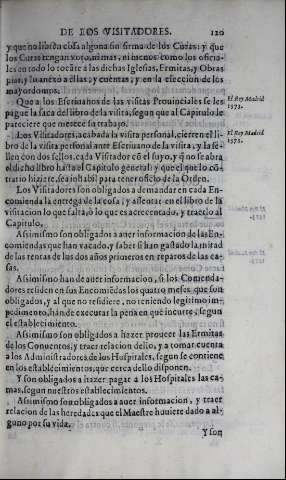 DE LOS VISITADORES. 120
y que no libre la cosa alguna sin firma de los Curas: y que
los Curas tengan voto, mi mas, ni menos como los oficia-
en todo lo tocãte a las dichas Iglesias, Ermitas, y Obras
pias, y lo anexo a ellas: y cuentas, y en la eleccion de los
mayordomos.
Que a los Escriuanos de las visitas Prouinciales se les
pague la saca del libro de la visita, segun que al Capitulo le
pareciere que merece su trabajo.
El Rey Madrid
1573.
Los Visitadores, acabada la visita personal, cierren el li-
bro de la visita personal ante Escriuano de la visita, y la se-
llen con dos sellos, cada Visitador cõ el suyo, y q̃ no se abra
el dicho libro hasta el Capitulo general: y que el que lo cõ-
trario hiziere, sea inhabil para tener oficio de la Orden.
El Rey Madrid
1573.
Los Visitadores son obligados a demandar en cada En-
comienda la entrega de la cosa, y assentar en el libro de la
visitacion lo que falta, o lo que es acrecentado, y traerlo al
Capitulo.
Assimismo son obligados a auer informacion de las En-
comiendas que han vacado, y saber si han gastado la mitad
de las rentas de los dos años primeros en reparos de las ca-
sas.
Assimismo han de auer informacion, si los Comenda-
dores residen en sus Encomiẽdas los quatro meses que son
obligados, y al que no residiere, no teniendo legitimo im-
pedimento, hãn de executar la pena en que incurre, segun
el establecimiento.
Assimismo son obligados a hazer proueer las Ermitas
de los Conuentos, y traer relacion dello, y a tomar cuenta
a los Administradores de los Hospitales, segun se contiene
en los establecimientos, que cerca dello disponen.
Y son obligados a hazer pagar a los Hospitales las ca-
mas, segun nuestros establecimientos.
Assimismo son obligados a auer informacion, y traer
relacion de las heredades que el Maestre huuiere dado a al-
guno por su vida.
Y son